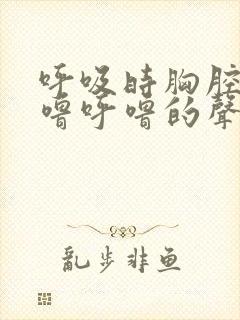 呼吸時胸腔
嚕呼嚕的聲
亂步非魚